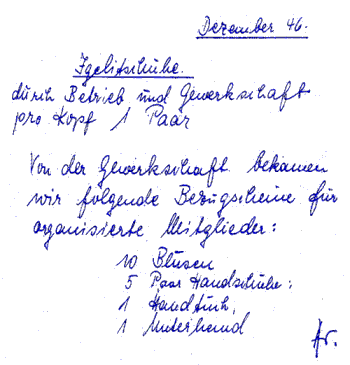 Dezember 46.
Igelitschuhe.
durch Betrieb und Gewerkschaft
pro Kopf 1 Paar
Von der Gewerkschaft bekamen
wir folgende Bezugscheine für
organisierte Mitglieder:
10 Blusen
5 Paar Handschuhe:
1 Handtuch,
1 Unterhemd